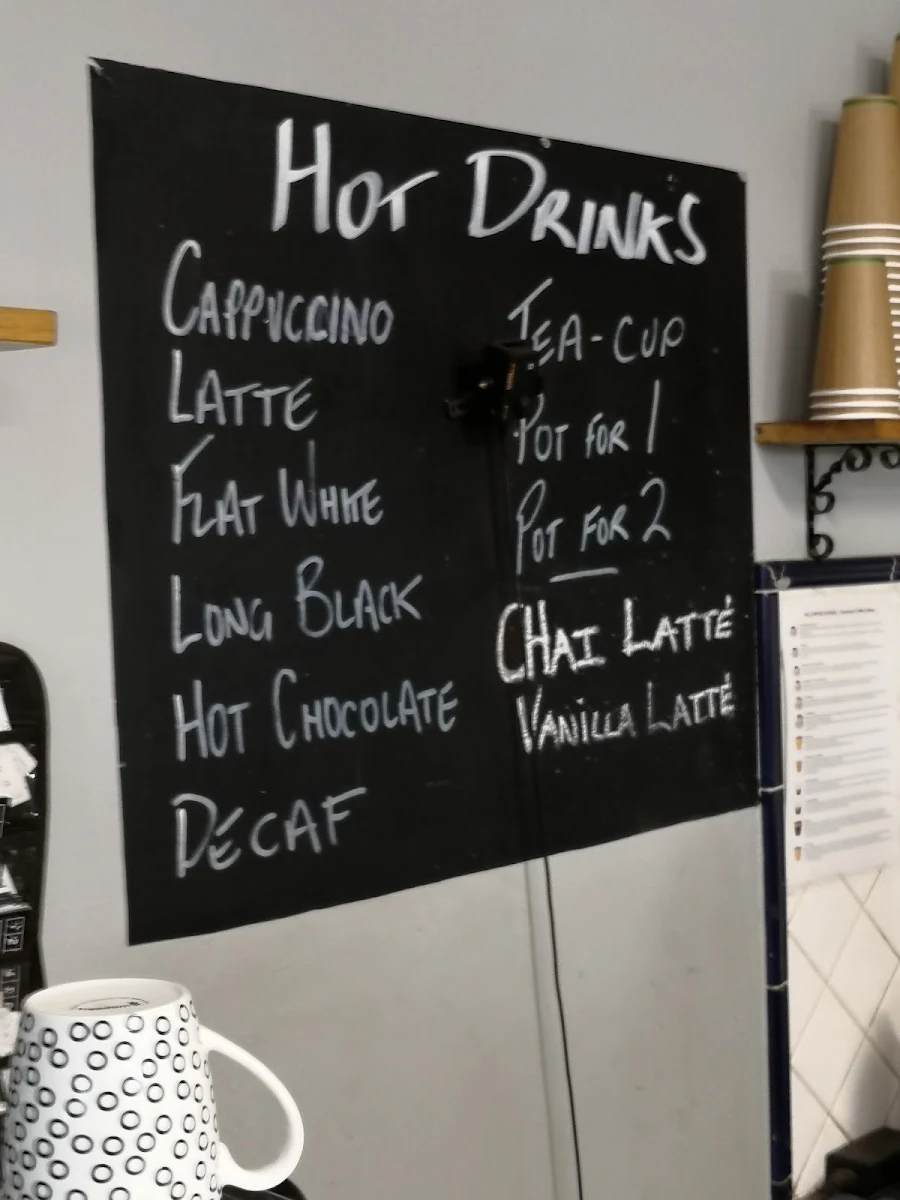 HOT DRINKS
CAPPUCCINO
LATTE
FLAT WHITE
LONG BLACK
HOT CHOCOLATE
DÉCAF
TEA-CUP
POT FOR 1
POT FOR 2
CHAI LATTÉ
VANILLA LATTÉ